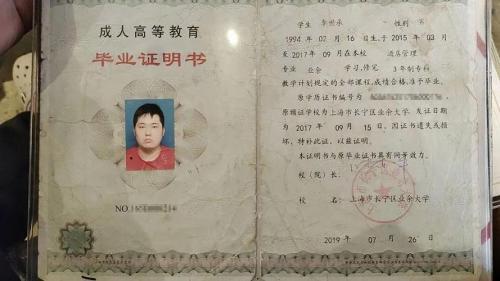 成人高等教育
毕业证明书
NO.
学生 李世承 性别 男
1994 年 07 月 16 日生,于 2015 年 03 月
至 2017 年 09 月在本校 酒店管理
专业 业余 学习,修完 3 年制专科
教学计划规定的全部课程,成绩合格,准予毕业。
原学历证书编号为
原颁证学校为上海市长宁区业余大学 发证日期
为 2017 年 09 月 15 日,因证书遗失或损
坏,特补此证,以兹证明。
本证明书与原毕业证书具有同等效力。
校(院)长:
校 名:上海市长宁区业余大学
2019 年 07 月 26 日